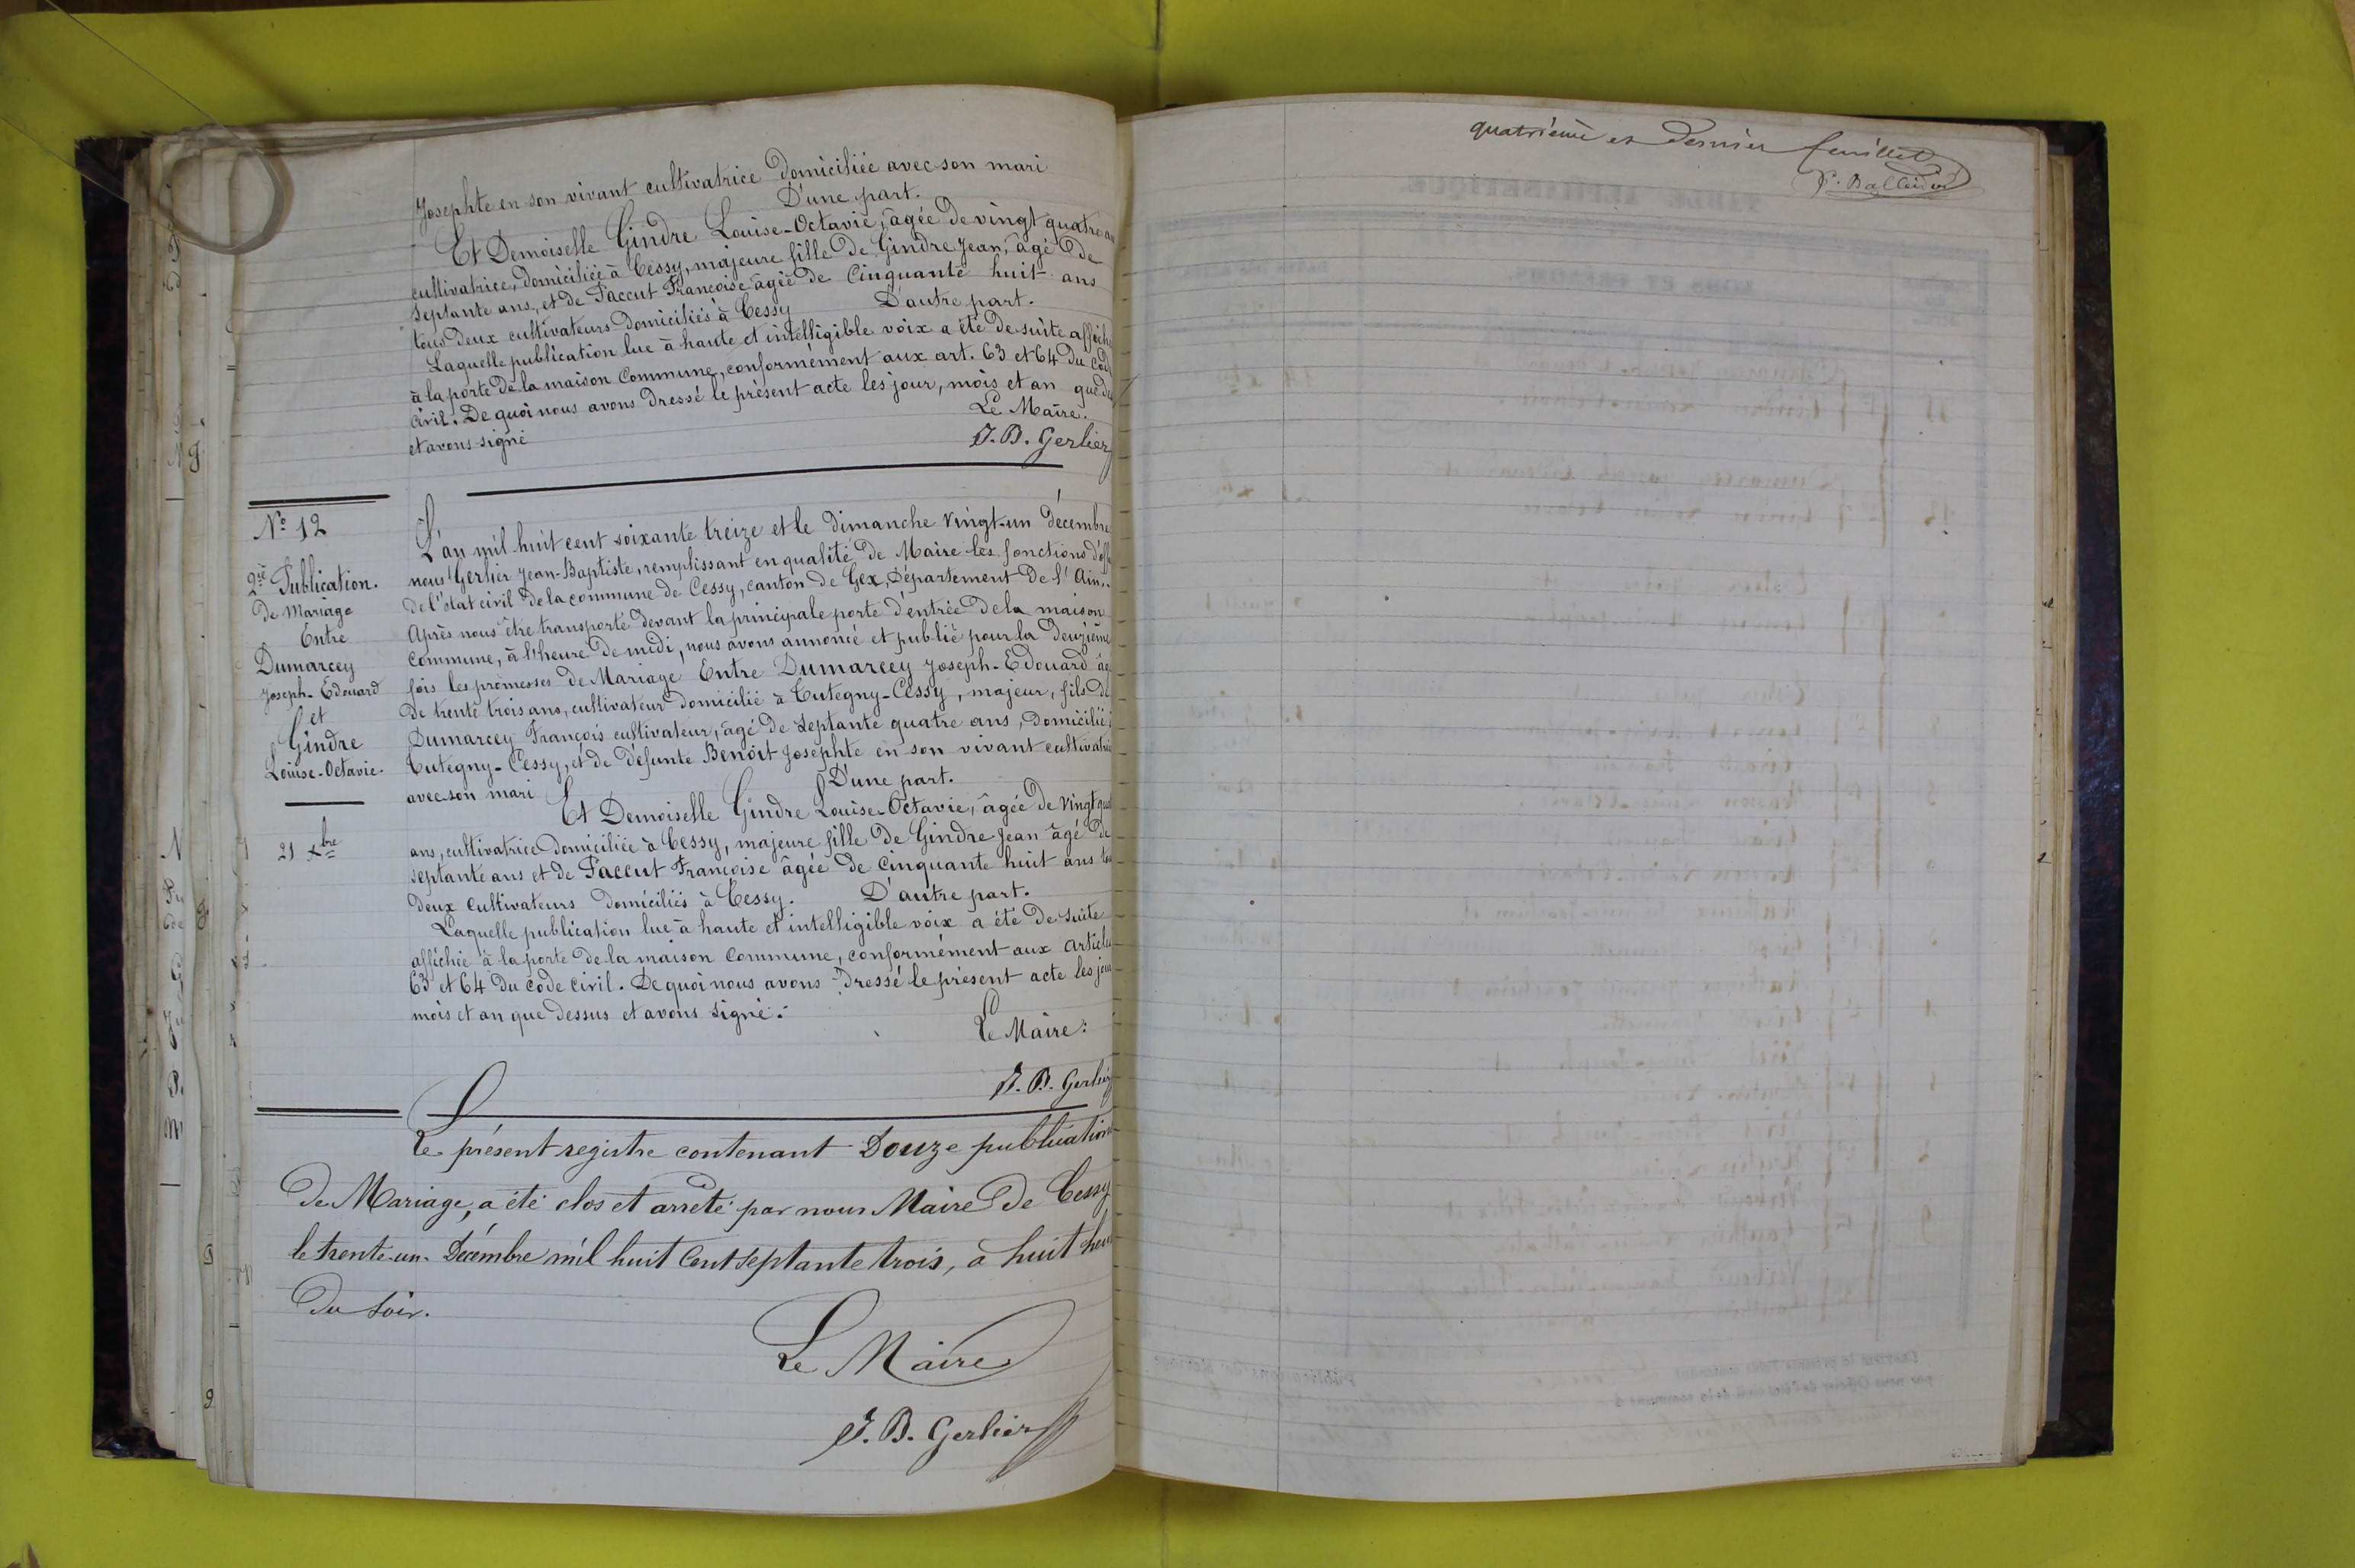 Josephte en son vivant cultivatrice domiciliée avec son mari
D'une part.
Et Demoiselle Gindre Louise-Octavie, âgée de vingt quatre
cultivatrice, domiciliée à Cessy, majeure fille de Gindre Jean, âgé de
septante ans, et de Paccut Françoise âgée de Cinquante huit ans
tous deux cultivateurs domiciliés à Cessy D'autre part.
Laquelle publication lue à haute et intelligible voix a été de suite
à la porte de la maison Commune, conformément aux art. 63 et 64 du
Civil. De quoi nous avons dressé le présent acte les jour, mois et an que
et avons signé
Le Maire.
J. B. Gerlier
Nº 12
2me Publication.
de Mariage
Entre
Dumarcey
Joseph-Edouard
et
Gindre
Louise-Octavie.
21 xbre
L'an mil huit cent soixante treize et le dimanche vingt-un décembre
nous Gerlier Jean-Baptiste, remplissant en qualité de Maire les fonctions
de l'état civil de la commune de Cessy, canton de Gex, Département de l'Ain,
Après nous être transporté devant la principale porte d'entrée de la maison
Commune, à l'heure de midi, nous avons annoncé et publié pour la deuzième
fois les promesses de Mariage Entre Dumarcey Joseph-Edouard
de trente trois ans, cultivateur domicilié à Tutegny-Cessy, majeur, fils de
Dumarcey François cultivateur, âgé de septante quatre ans, domicilié
Tutegny-Cessy, et de défunte Benoit Josephte en son vivant
avec son mari D'une part.
Et Demoiselle Gindre Louise-Octavie, âgée de vingt
ans, cultivatrice domiciliée à Cessy, majeure fille de Gindre Jean âgé de
septante ans et de Paccut Françoise âgée de Cinquante huit ans
deux cultivateurs domiciliés à Cessy. D'autre part.
Laquelle publication lue à haute et intelligible voix a été de suite
affichée à la porte de la maison Commune, conformément aux
63 et 64 du code civil. De quoi nous avons dressé le présent acte les
mois et an que dessus et avons signé.
Le Maire:
J. B. Gerlier
Le présent registre contenant Douze publications
de Mariage, a été clos et arrêté par nous Maire de Cessy
le trente-un Décembre mil huit Cent septante trois, à huit
du soir.
Le Maire
J. B. Gerlier
quatrième et dernier feuillet